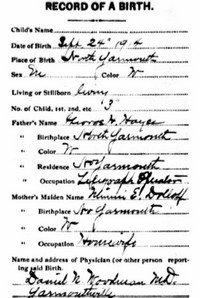 RECORD OF A BIRTH.
Child's Name
Date of Birth Sept. 24" 19
Place of Birth North Yarmouth
Sex M Color W
Living or Stillborn Living
No. of Child, 1st, 2nd, etc "3"
Father's Name George H. Hayes
" Birthplace North Yarmouth
" Color W
" Residence No Yarmouth
" Occupation Telegraph Operator
Mother's Maiden Name Minnie E.
" Birthplace No Yarmouth
" Color W
" Occupation Housewife
Name and address of Physician (or other person reporting said Birth.
Daniel N. Woodman M.D.
Yarmouthville